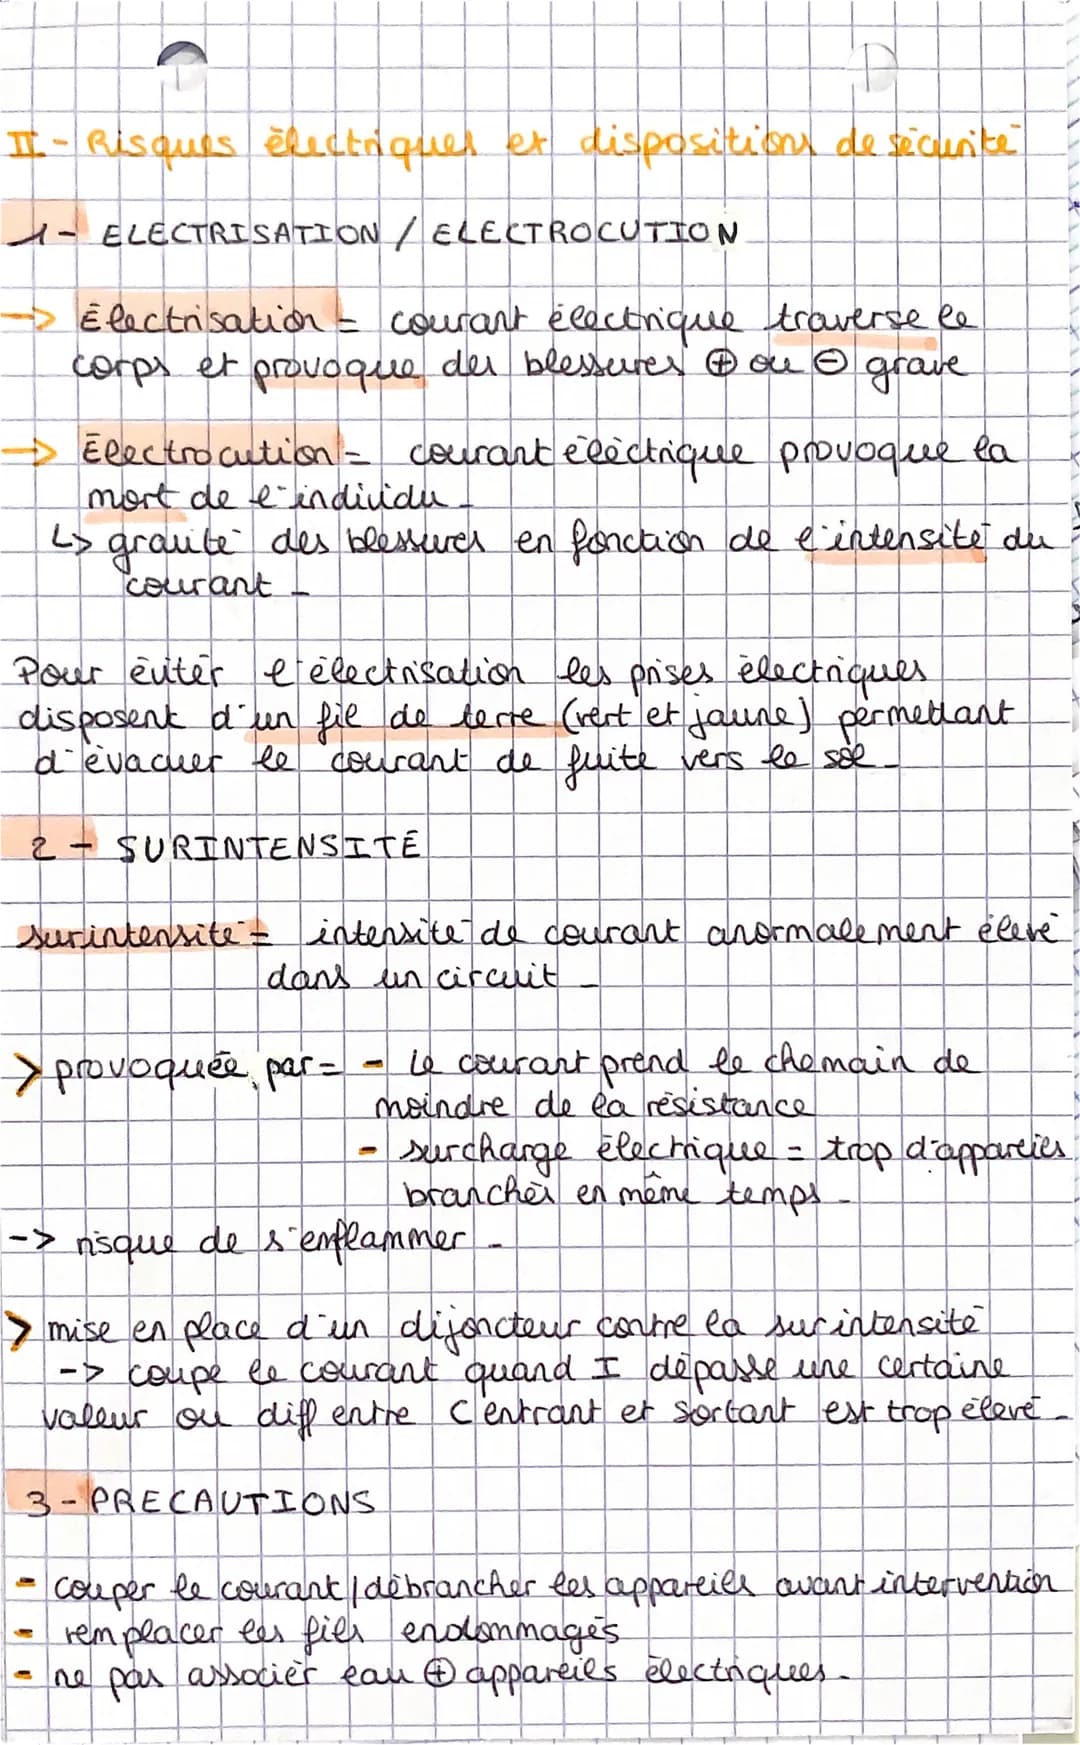 II - Risques électriques et dispositions de sécurité
1 - ELECTRISATION / ELECTROCUTION
→ Électrisation = courant électrique traverse le
corps et provoque des blessures ⊕ ou ⊖ grave
→ Électrocution = courant éléctrique provoque la
mort de l'individu.
↳ gravité des blessures en fonction de l'intensité du
courant.
Pour éviter l'électrisation les prises électriques
disposent d'un fil de terre (vert et jaune) permettant
d'évacuer le courant de fuite vers le sol.
2 - SURINTENSITÉ
surintensité = intensité de courant anormalement élevé
dans un circuit.
> provoquée par = - le courant prend le chemain de
moindre de la résistance
- surcharge électrique = trop d'appareils
branchés en même temps.
-> risque de s'enflammer.
> mise en place d'un dijoncteur contre la surintensité
-> coupe le courant quand I dépasse une certaine
valeur ou diff entre C entrant et sortant est trop élevé.
3 - PRECAUTIONS
- couper le courant / débrancher les appareils avant intervention
- remplacer les fils endommagés
- ne pas associer eau ⊕ appareils électriques.